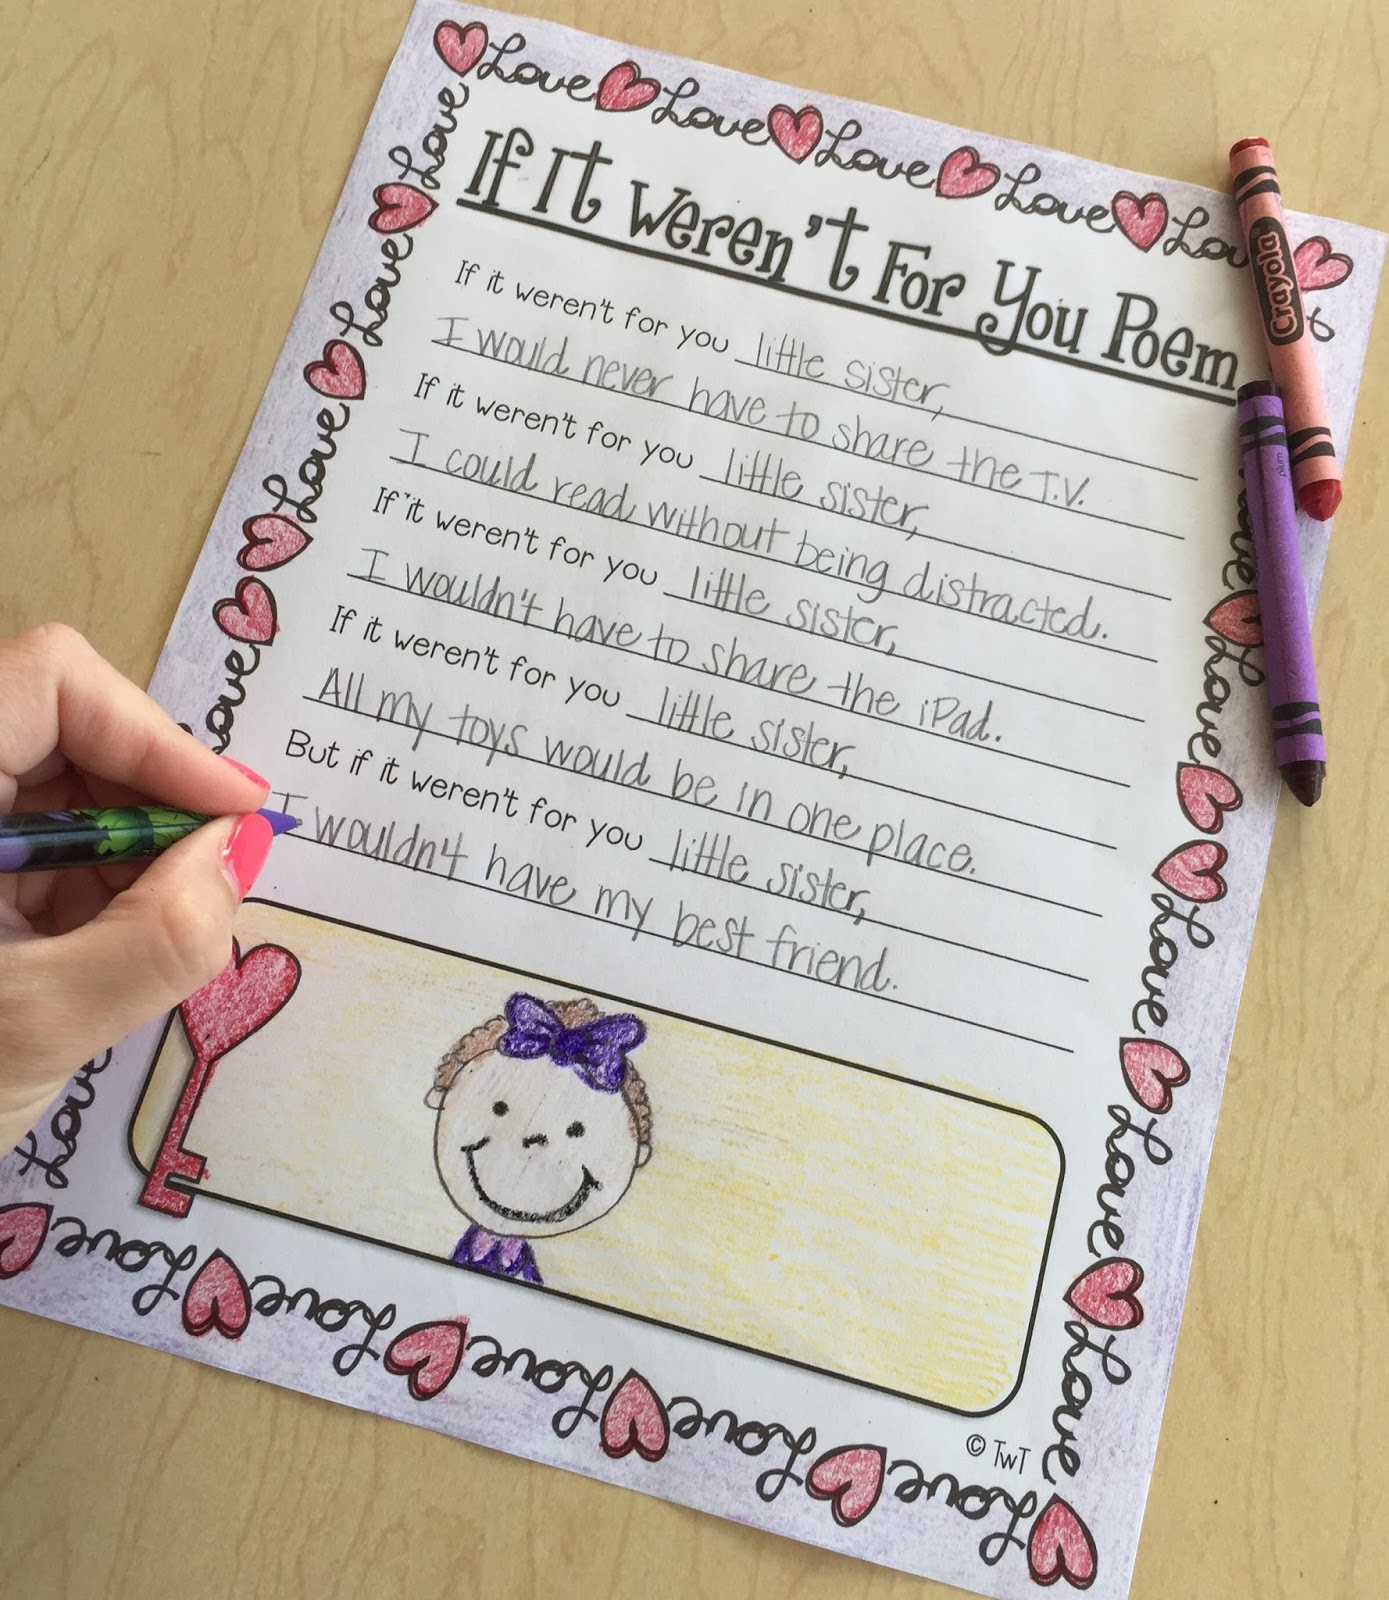 Love Love Love Love Lov
If It Weren't For You Poem
If it weren't for you little sister,
I would never have to share the T.V.
If it weren't for you little sister,
I could read without being distracted.
If it weren't for you little sister,
I wouldn't have to share the iPad.
If it weren't for you little sister,
All my toys would be in one place.
But if it weren't for you little sister,
I wouldn't have my best friend.
© TwT
Love
Love
Love
Love
Love
Love
Love
Love
Love
Love
Love Love Love Love Love Love
Crayola
plum